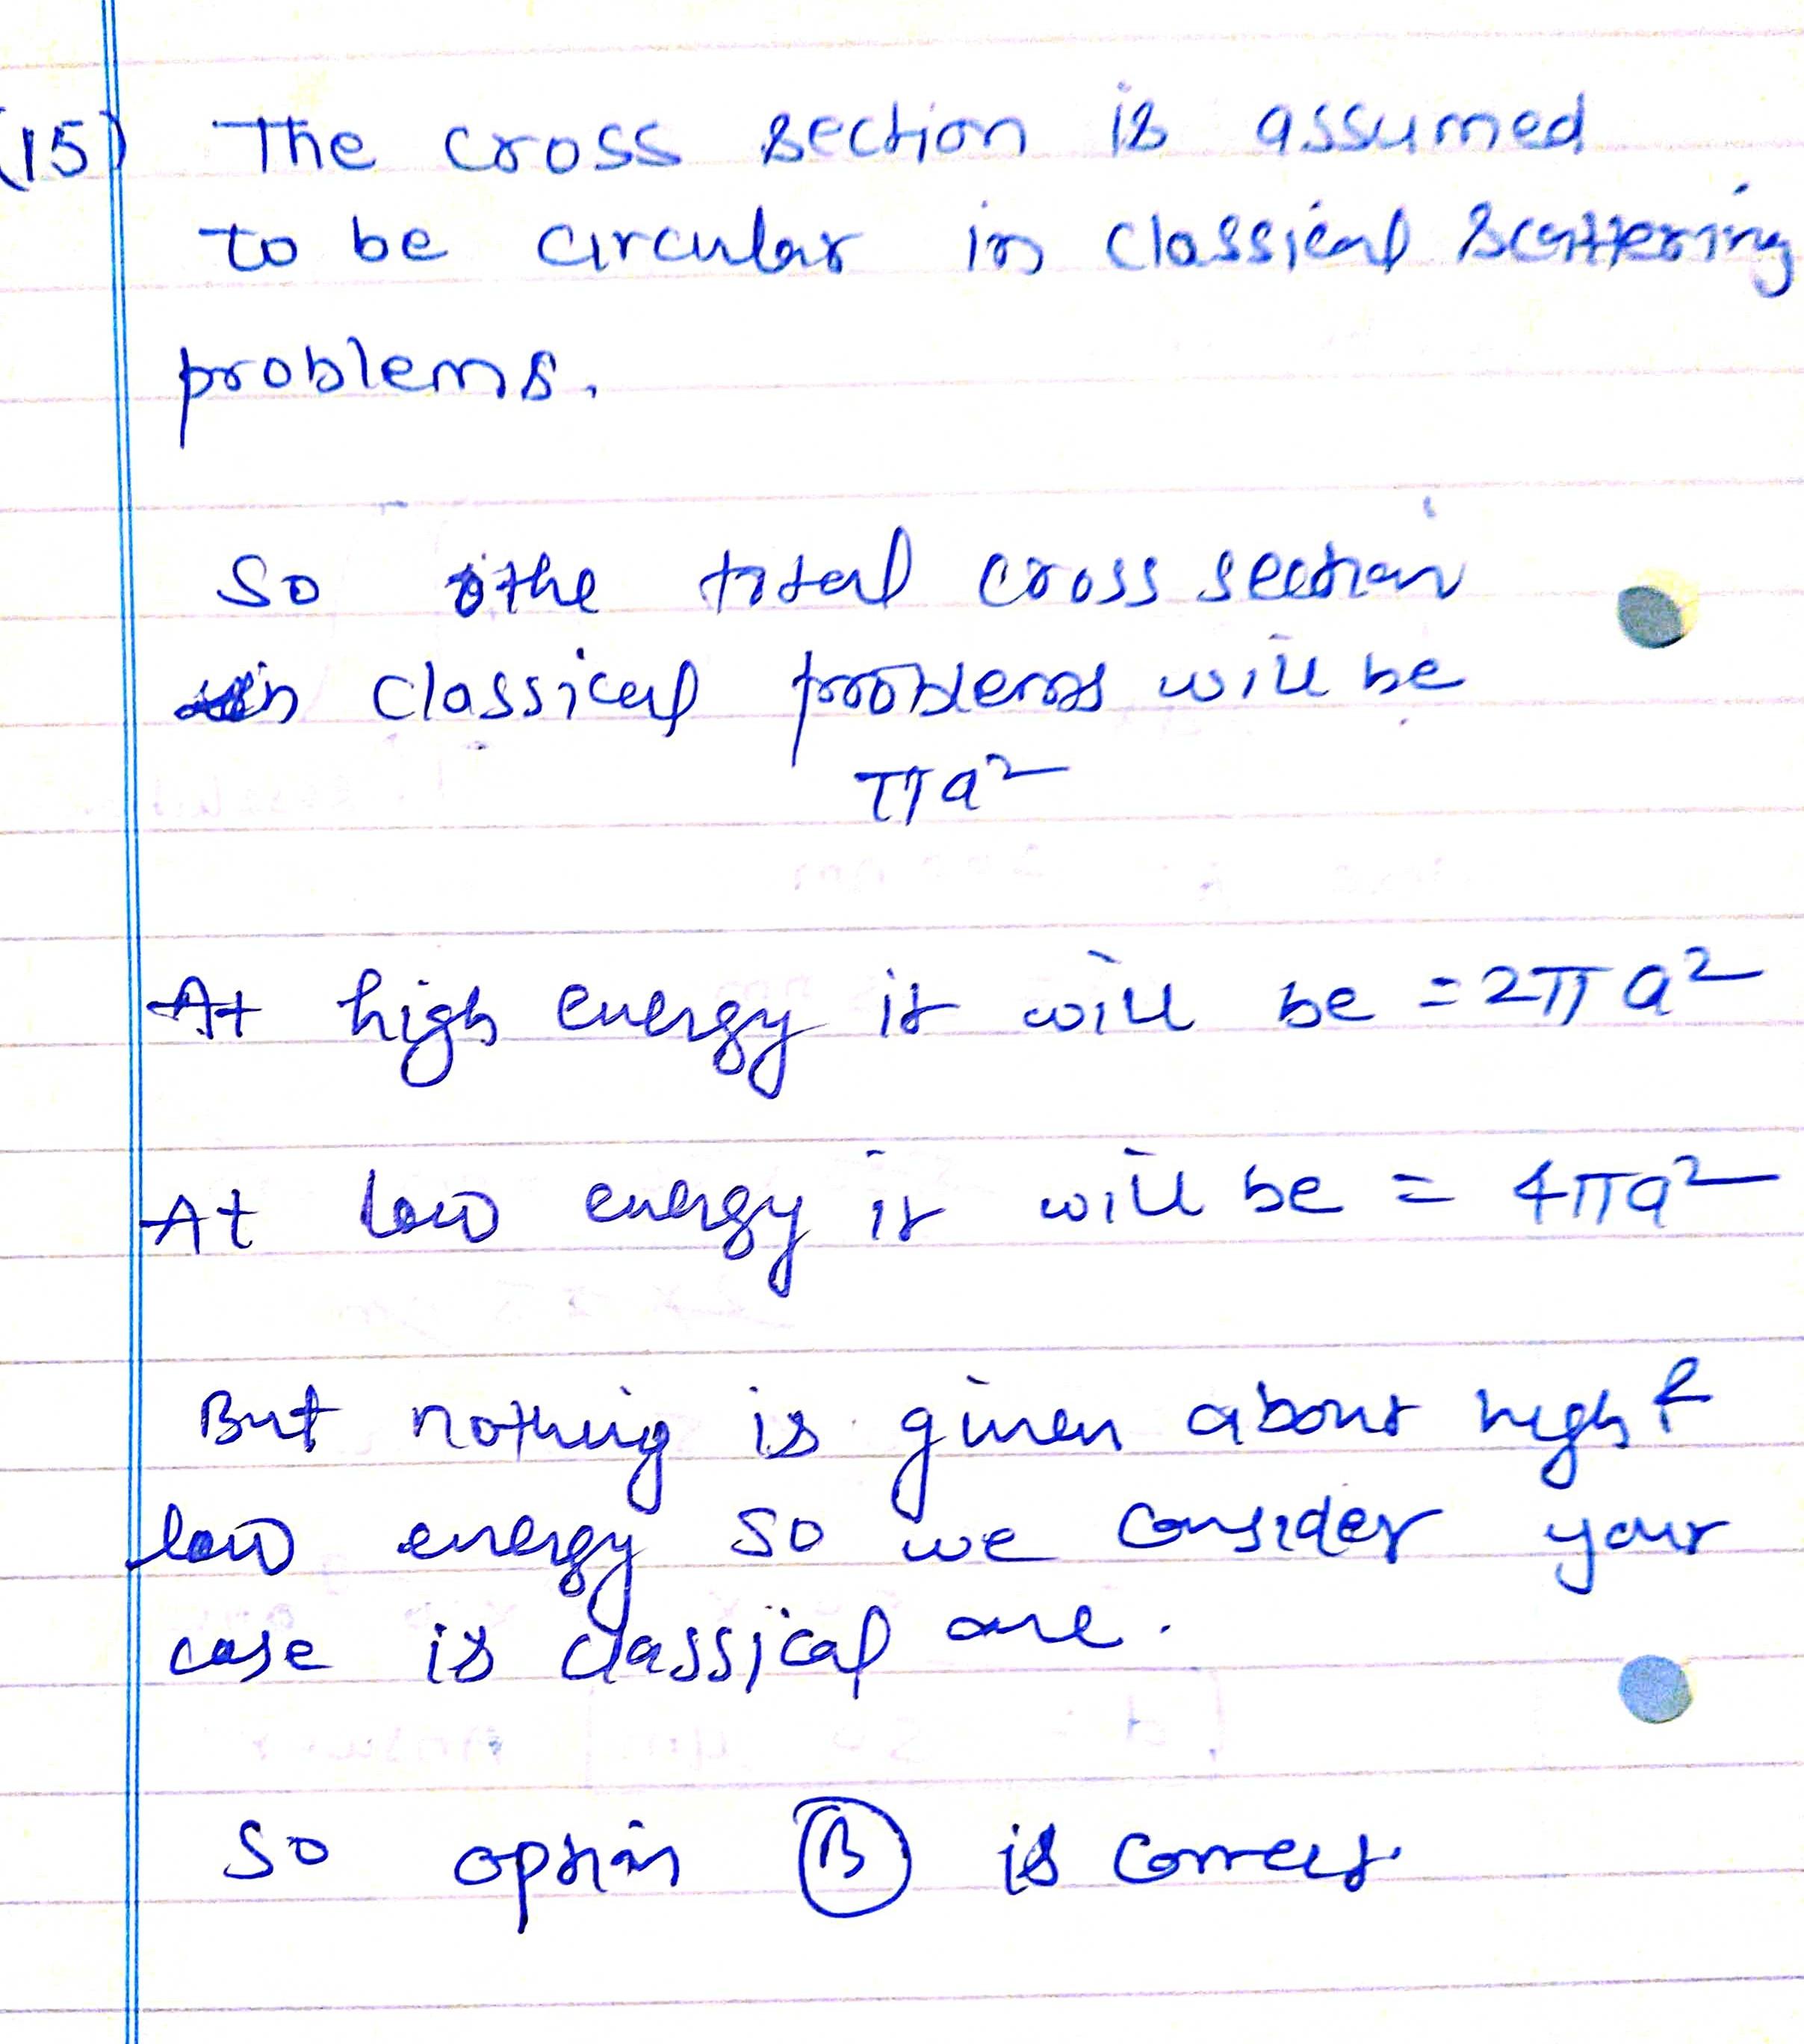 (15) The cross section is assumed
to be circular in classical scattering
problems.
So the total cross section
in classical problems will be
πa²
At high energy it will be = 2πa²
At low energy it will be = 4πa²
But nothing is given about high &
low energy so we consider your
case is classical one.
So option (B) is correct